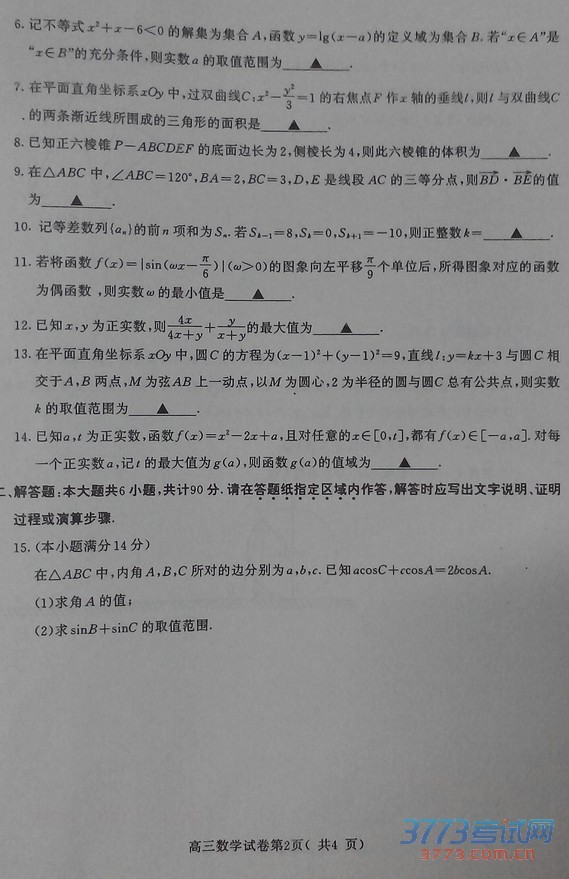 6. 记不等式 x²+x-6<0 的解集为集合 A,函数 y=lg(x-a)的定义域为集合 B. 若“x∈A”是
“x∈B”的充分条件,则实数 a 的取值范围为 ▲ .
7. 在平面直角坐标系 xOy 中,过双曲线 C:x²-y²/3=1 的右焦点 F 作 x 轴的垂线 l,则 l 与双曲线 C
的两条渐近线所围成的三角形的面积是 ▲ .
8. 已知正六棱锥 P-ABCDEF 的底面边长为 2,侧棱长为 4,则此六棱锥的体积为 ▲ .
9. 在△ABC 中,∠ABC=120°,BA=2,BC=3,D,E 是线段 AC 的三等分点,则BD·BE的值
为 ▲ .
10. 记等差数列{aₙ}的前 n 项和为 Sₙ. 若 Sₖ₋₁=8,Sₖ=0,Sₖ₊₁=-10,则正整数 k= ▲ .
11. 若将函数 f(x)=|sin(ωx-π/6)|(ω>0)的图象向左平移π/9个单位后,所得图象对应的函数
为偶函数 ,则实数 ω 的最小值是 ▲ .
12. 已知 x,y 为正实数,则4x/(4x+y)+y/(x+y)的最大值为 ▲ .
13. 在平面直角坐标系 xOy 中,圆 C 的方程为(x-1)²+(y-1)²=9,直线 l:y=kx+3 与圆 C 相
交于 A,B 两点,M 为弦 AB 上一动点,以 M 为圆心,2 为半径的圆与圆 C 总有公共点,则实数
k 的取值范围为 ▲ .
14. 已知 a,t 为正实数,函数 f(x)=x²-2x+a,且对任意的 x∈[0,t],都有 f(x)∈[-a,a]. 对每
一个正实数 a,记 t 的最大值为 g(a),则函数 g(a)的值域为 ▲ .
二、解答题:本大题共6小题,共计90分. 请在答题纸指定区域内作答,解答时应写出文字说明、证明
过程或演算步骤.
15. (本小题满分14分)
在△ABC 中,内角 A,B,C 所对的边分别为 a,b,c. 已知 acosC+ccosA=2bcosA.
(1)求角 A 的值;
(2)求 sinB+sinC 的取值范围.
高三数学试卷第2页( 共4 页)
3773考试网
3773.com.cn